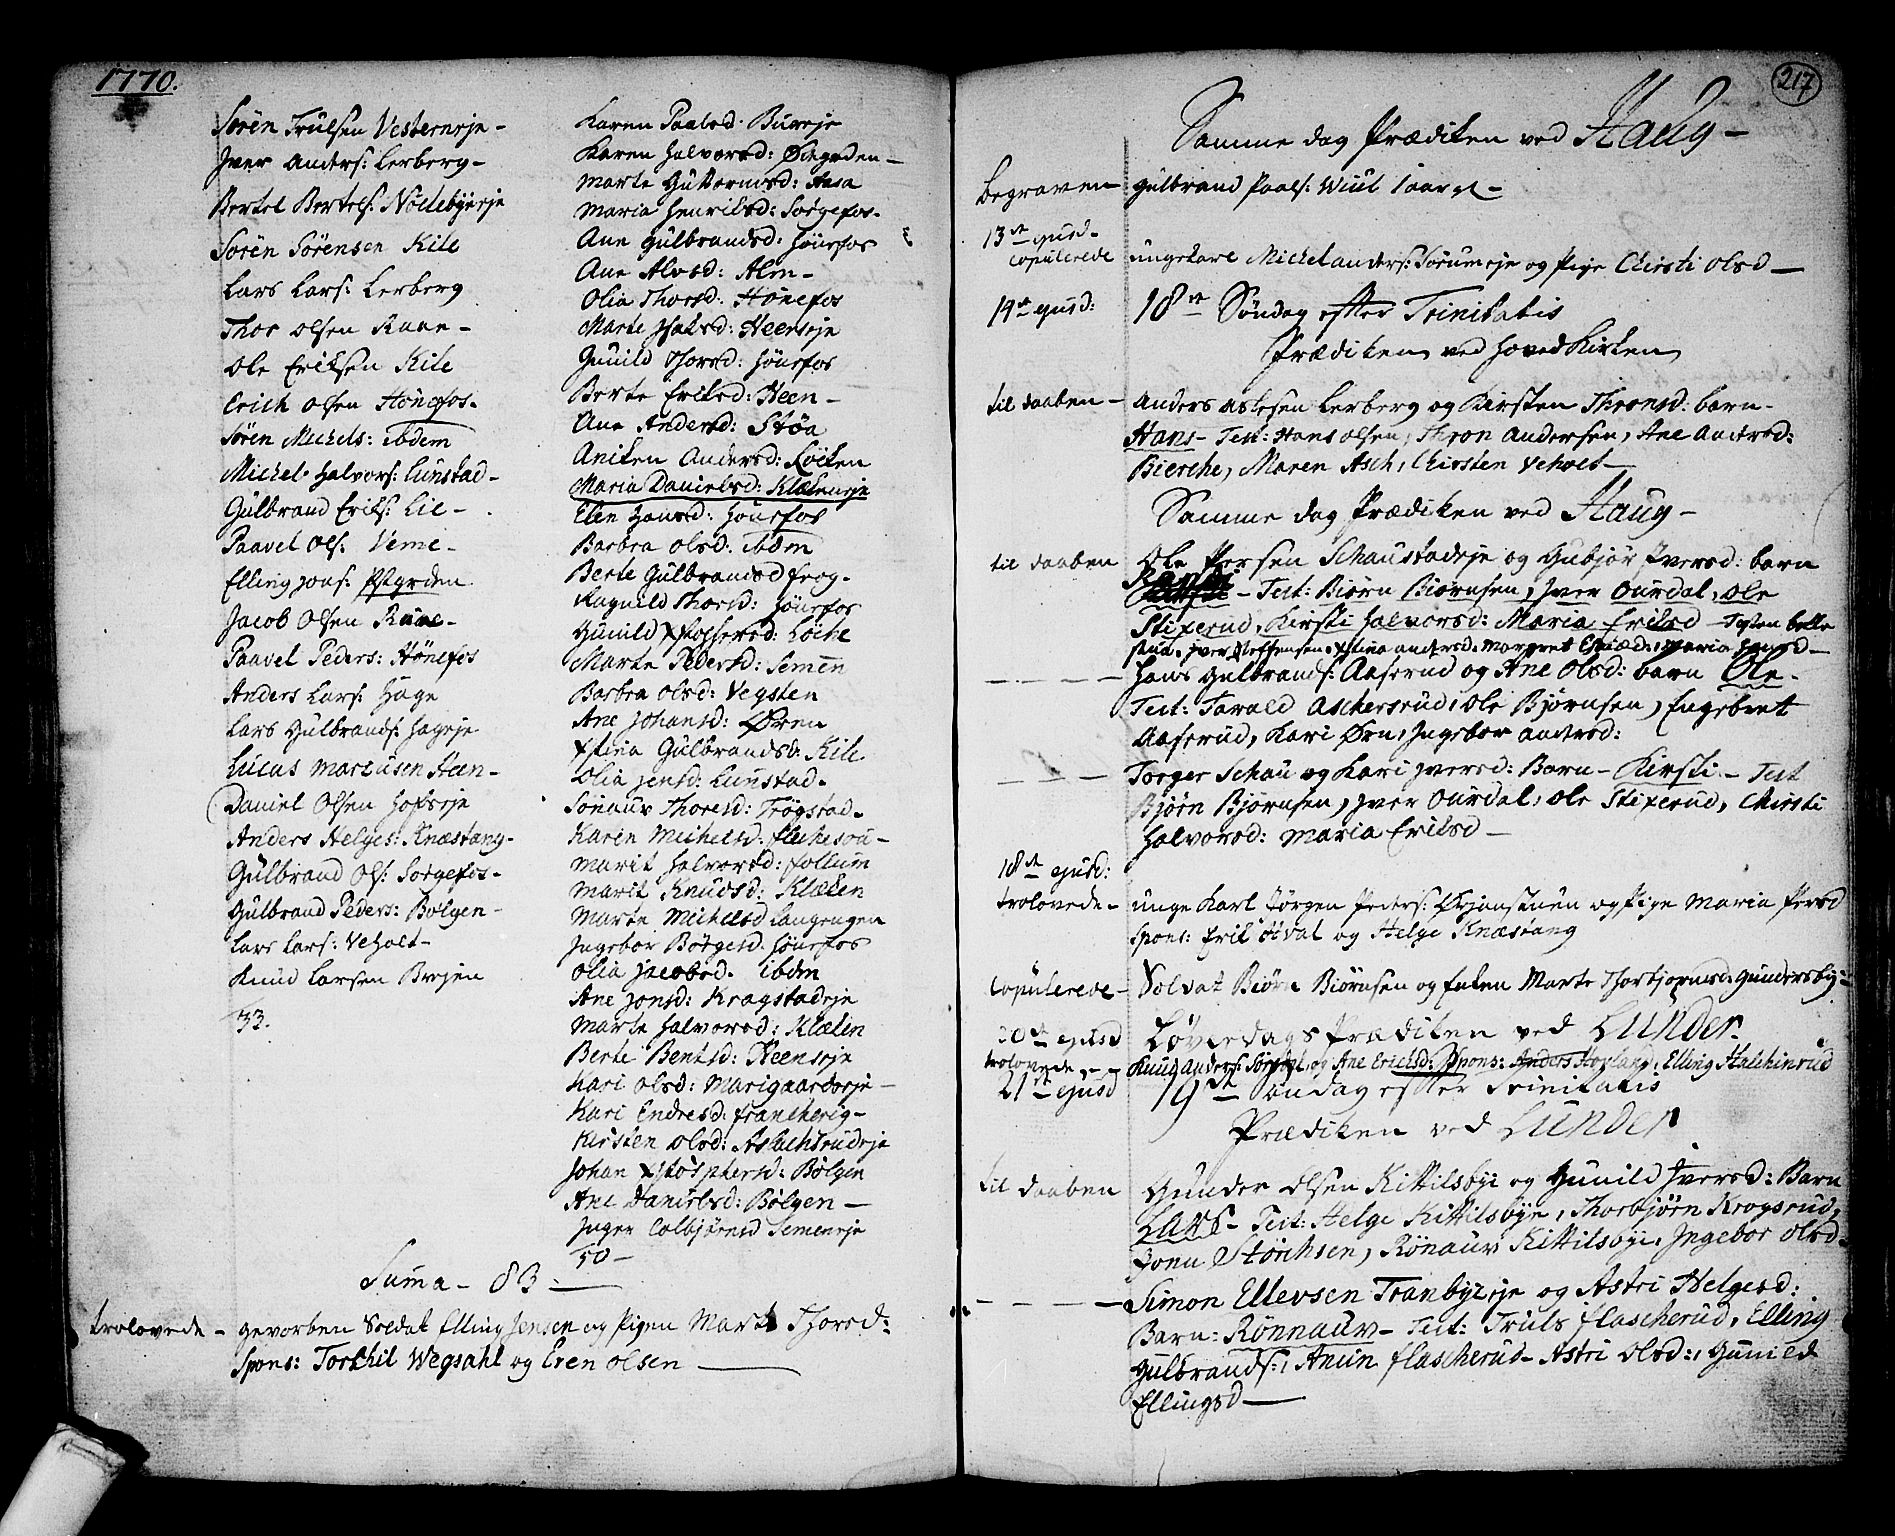 1770.
Sören Trulsen Vesterneje -
Jver Anders: Lerberg -
Bertel Bertels: Noelebyeeje
Sören Sörensen Kile
Lars Lars: Lerberg
Thor Olsen Raae -
Ole Eriksen Kile
Erich Olsen Hönefos.
Sören Michels: ibdem
Michel Halvors: Lunstad -
Gülbrand Eriks: Lie -
Paavel Ols: Veme -
Elling Jons:
Jacob Olsen
Paavel Peders: Hönefos
Anders Lars: Hage
Lars Gülbrands: Hageje
Lucas Marcusen Heen -
Daniel Olsen Hofseje
Anders Helges: Knæstang -
Gülbrand Ols: Sörgefos -
Gülbrand Peders: Bölgen -
Lars Lars: Veholt -
Knud Larsen
33.
Karen Paalsd: Bureje
Karen Halvorsd: Öegrden -
Marte Guttormsd: Aasa
Maria Henriksd: Sörgefos -
Ane Gülbrandsd: Hönefos
Ane Alvsd: Alm -
Olia Thorsd: Hönefos
Marte Jsaksd: Heenseje
Gunild Thorsd: Hönefos
Berte Eriksd: Heen -
Ane Andersd: Stöa
Aniken Andersd: Löcken
Maria Danielsd: Klækeneje
Elen Hansd: Hönefos
Barbra Olsd: ibdm
Berte Gülbrandsd Frog -
Ragnild Thorsd: Hönefos
Gunild Xstoffersd: Löche
Marte Pedersd: Semen
Barbra Olsd: Vegsten
Ane Johansd: Ören
Xstina Gülbrandsd: Kile
Olia Jensd: Lunstad -
Sönauv Thoresd: Trögstad -
Karen Michelsd: Flechesöu -
Marit Halvorsd: Follum
Marit Knudsd: Klæken
Marte Michelsd Langengen
Jngebor Börgesd: Hönefos
Olia Jacobsd - ibdm
Ane Jonsd: Kragstadeje
Marte Halvorsd: Klæken
Berte Bentsd: Heenseje
Kari Olsd: Marigaardseje -
Kari Endresd: Francherig -
Kirsten Olsd: Aslachsrudeje
Johan Xstöphersd: Bölgen
Ane Danielsd: Bölgen -
Jnger Colbjörnsd Semeneje
50 -
Suma - 83 -
trolovede - gevorben Soldat Elling Jensen og Pigen Marte Thorsd:
Spons: Torkhil Wegsahl og Eren Olsen
217
Samme dag Prædiken ved Haug -
Begraven Gülbrand Paals: Wiul 1 aar
13de ejusd -
Copulerede ungekarl Michel Anders: Sörumeje og Pige Chirsti Olsd -
14de ejusd: 18de Söndag efter Trinitatis
Prædiken ved Hoved Kirken
til daaben - Anders Aslesen Lerberg og Kirsten Thronsd: barn -
Hans - Test: Hans Olsen, Thron Andersen, Ane Andersd:
Bierche, Maren Asch, Chirsten Veholt -
Samme dag Prædiken ved Haug -
til daaben Ole Persen Schaustadeje og Gubjör Jversd: barn
- Test: Biörn Biörnsen, Jver Ourdal, Ole
Stixerud, Kirsti Halvorsd: Maria Eriksd - Testen
Jver Steffensen, Xstina Andersd. Margret Maria Hansd -
- - - - Hans Gulbrands: Aaserud og Ane Olsd: barn Ole -
Test: Tarald Aschersrud, Ole Björnsen, Engebret
Aaserud, Kari Örn, Jngebor Andersd:
- - - Torger Schau og Kari Jversd: Barn - Kirsti - Test
Björn Björnsen, Jver Ourdal, Ole Stixerud, Chirsti
Halvorsd: Maria Eriksd -
18de ejusd:
trolovede - unge Karl Jörgen Peders: Örjanstuen og Pige Maria Persd
Spons: Erik og Helge Knæstang
Copulerede - Soldat Biörn Biörnsen og Marte Thorbjörnsd: Gundersbye -
20de ejusd Löverdags Prædiken ved Lunder -
trolovede - - Knud Anders: og Ane Ericksd: Spons: Anders Hovland, Elling Halchinrud
21de ejusd 19de Söndag efter Trinitatis
Prædiken ved Lunder
til daaben Gunder Olsen Kittilsbye og Gunild Jversd: Barn
Lars - Test: Helge Kittilsbye, Thorbjörn Krogsrud,
Jonn Störchsen, Rönauv Kittilsbye, Jngebor Olsd -
- - - - Simon Ellevsen Tranbyeeje og Astri Helgesd:
Barn: Rönnauv - Test: Truls Flascherud, Elling
Gulbrands:, Aniin Flascherud - Astri Olsd:, Gunild
Ellingsd -